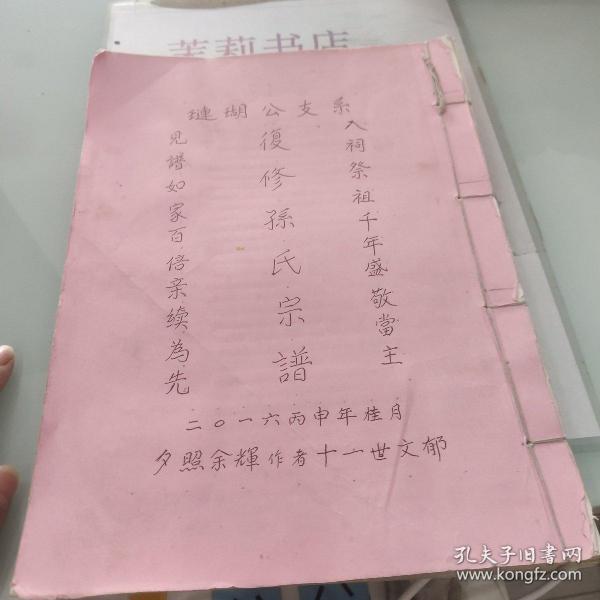 茉莉书店
琏瑚公支系
入祠祭祖千年盛敬當主
復修孫氏宗譜
見譜如家百倍亲續為先
二〇一六丙申年桂月
夕照余輝作者十一世文郁
孔夫子旧书网
www.kongfz.com